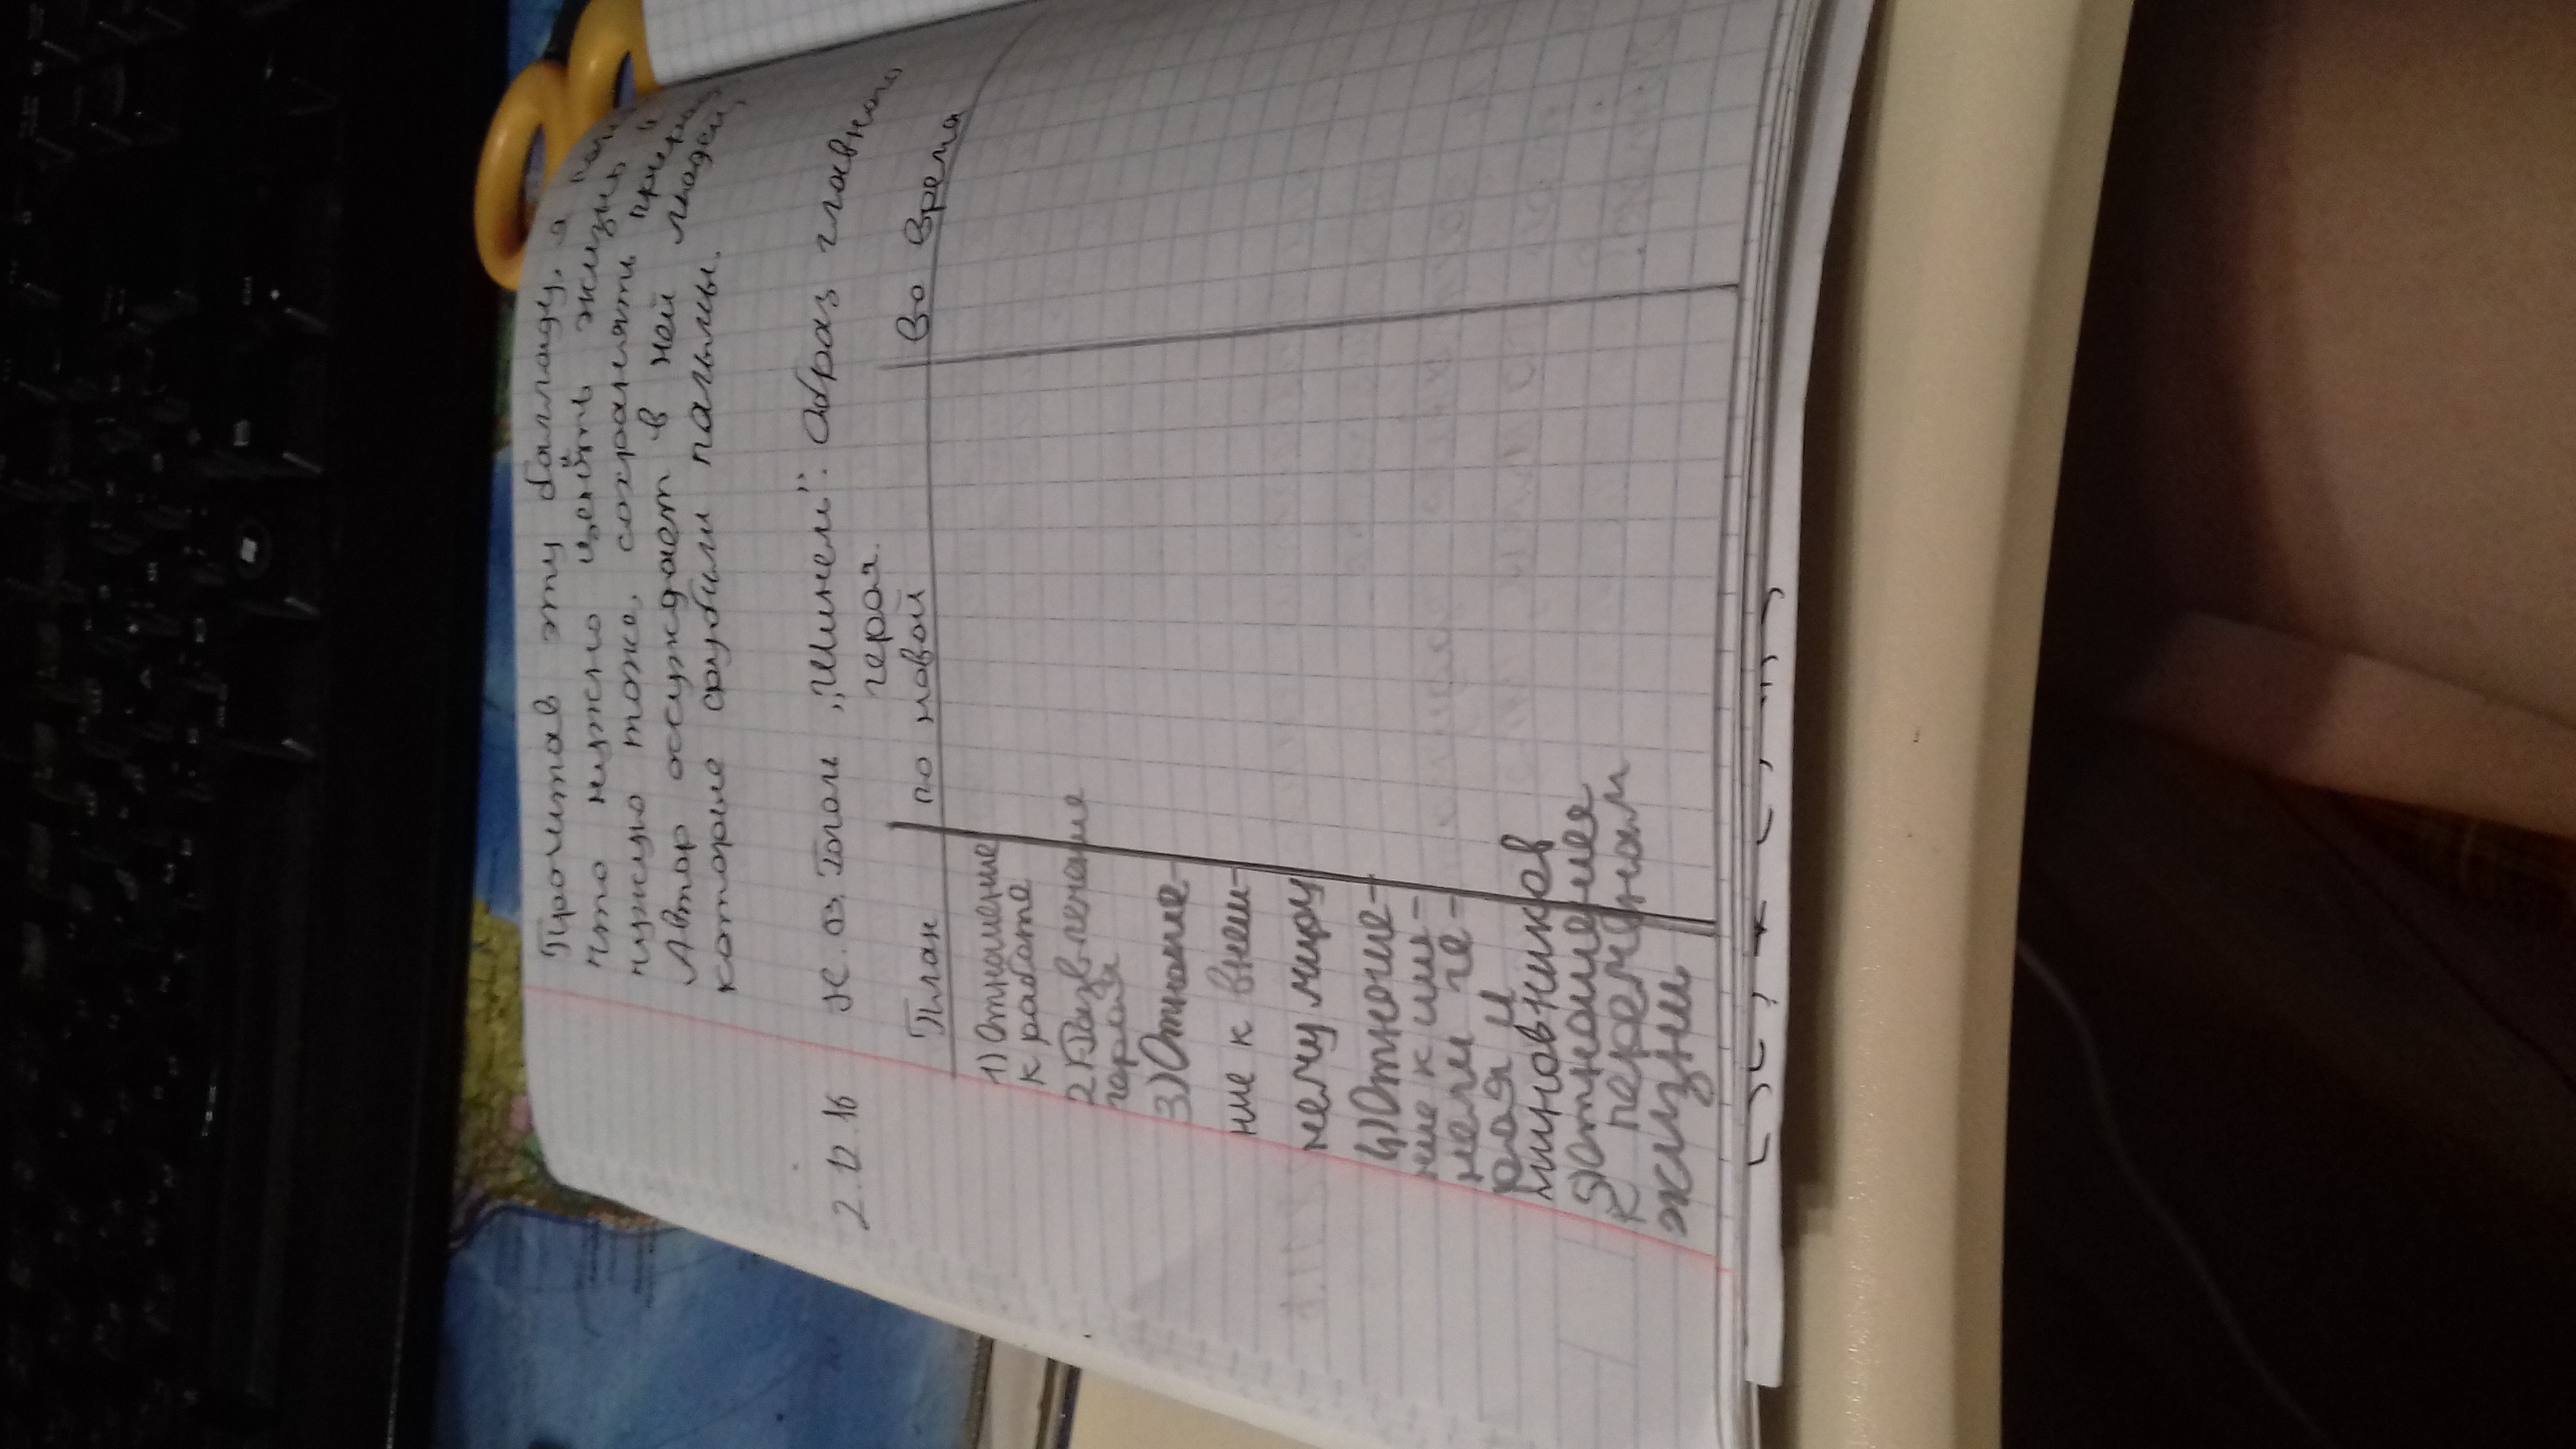 Прочитав эту балладу, я
что нужно ценить жизнь
нужно тоже, сохранять природу
Автор осуждает в ней людей,
которые срубили пальмы.
2.12.16 Н.В. Гоголь „Шинель". Образ главного
героя.
План по новой Во время
1) Отношение
к работе
2) Развлечение
героя
3) Отноше-
ние к внеш-
нему миру
4) Отноше-
ние к ши-
нели ге-
роя и
чиновников
5) отношение
к переменам
жизни